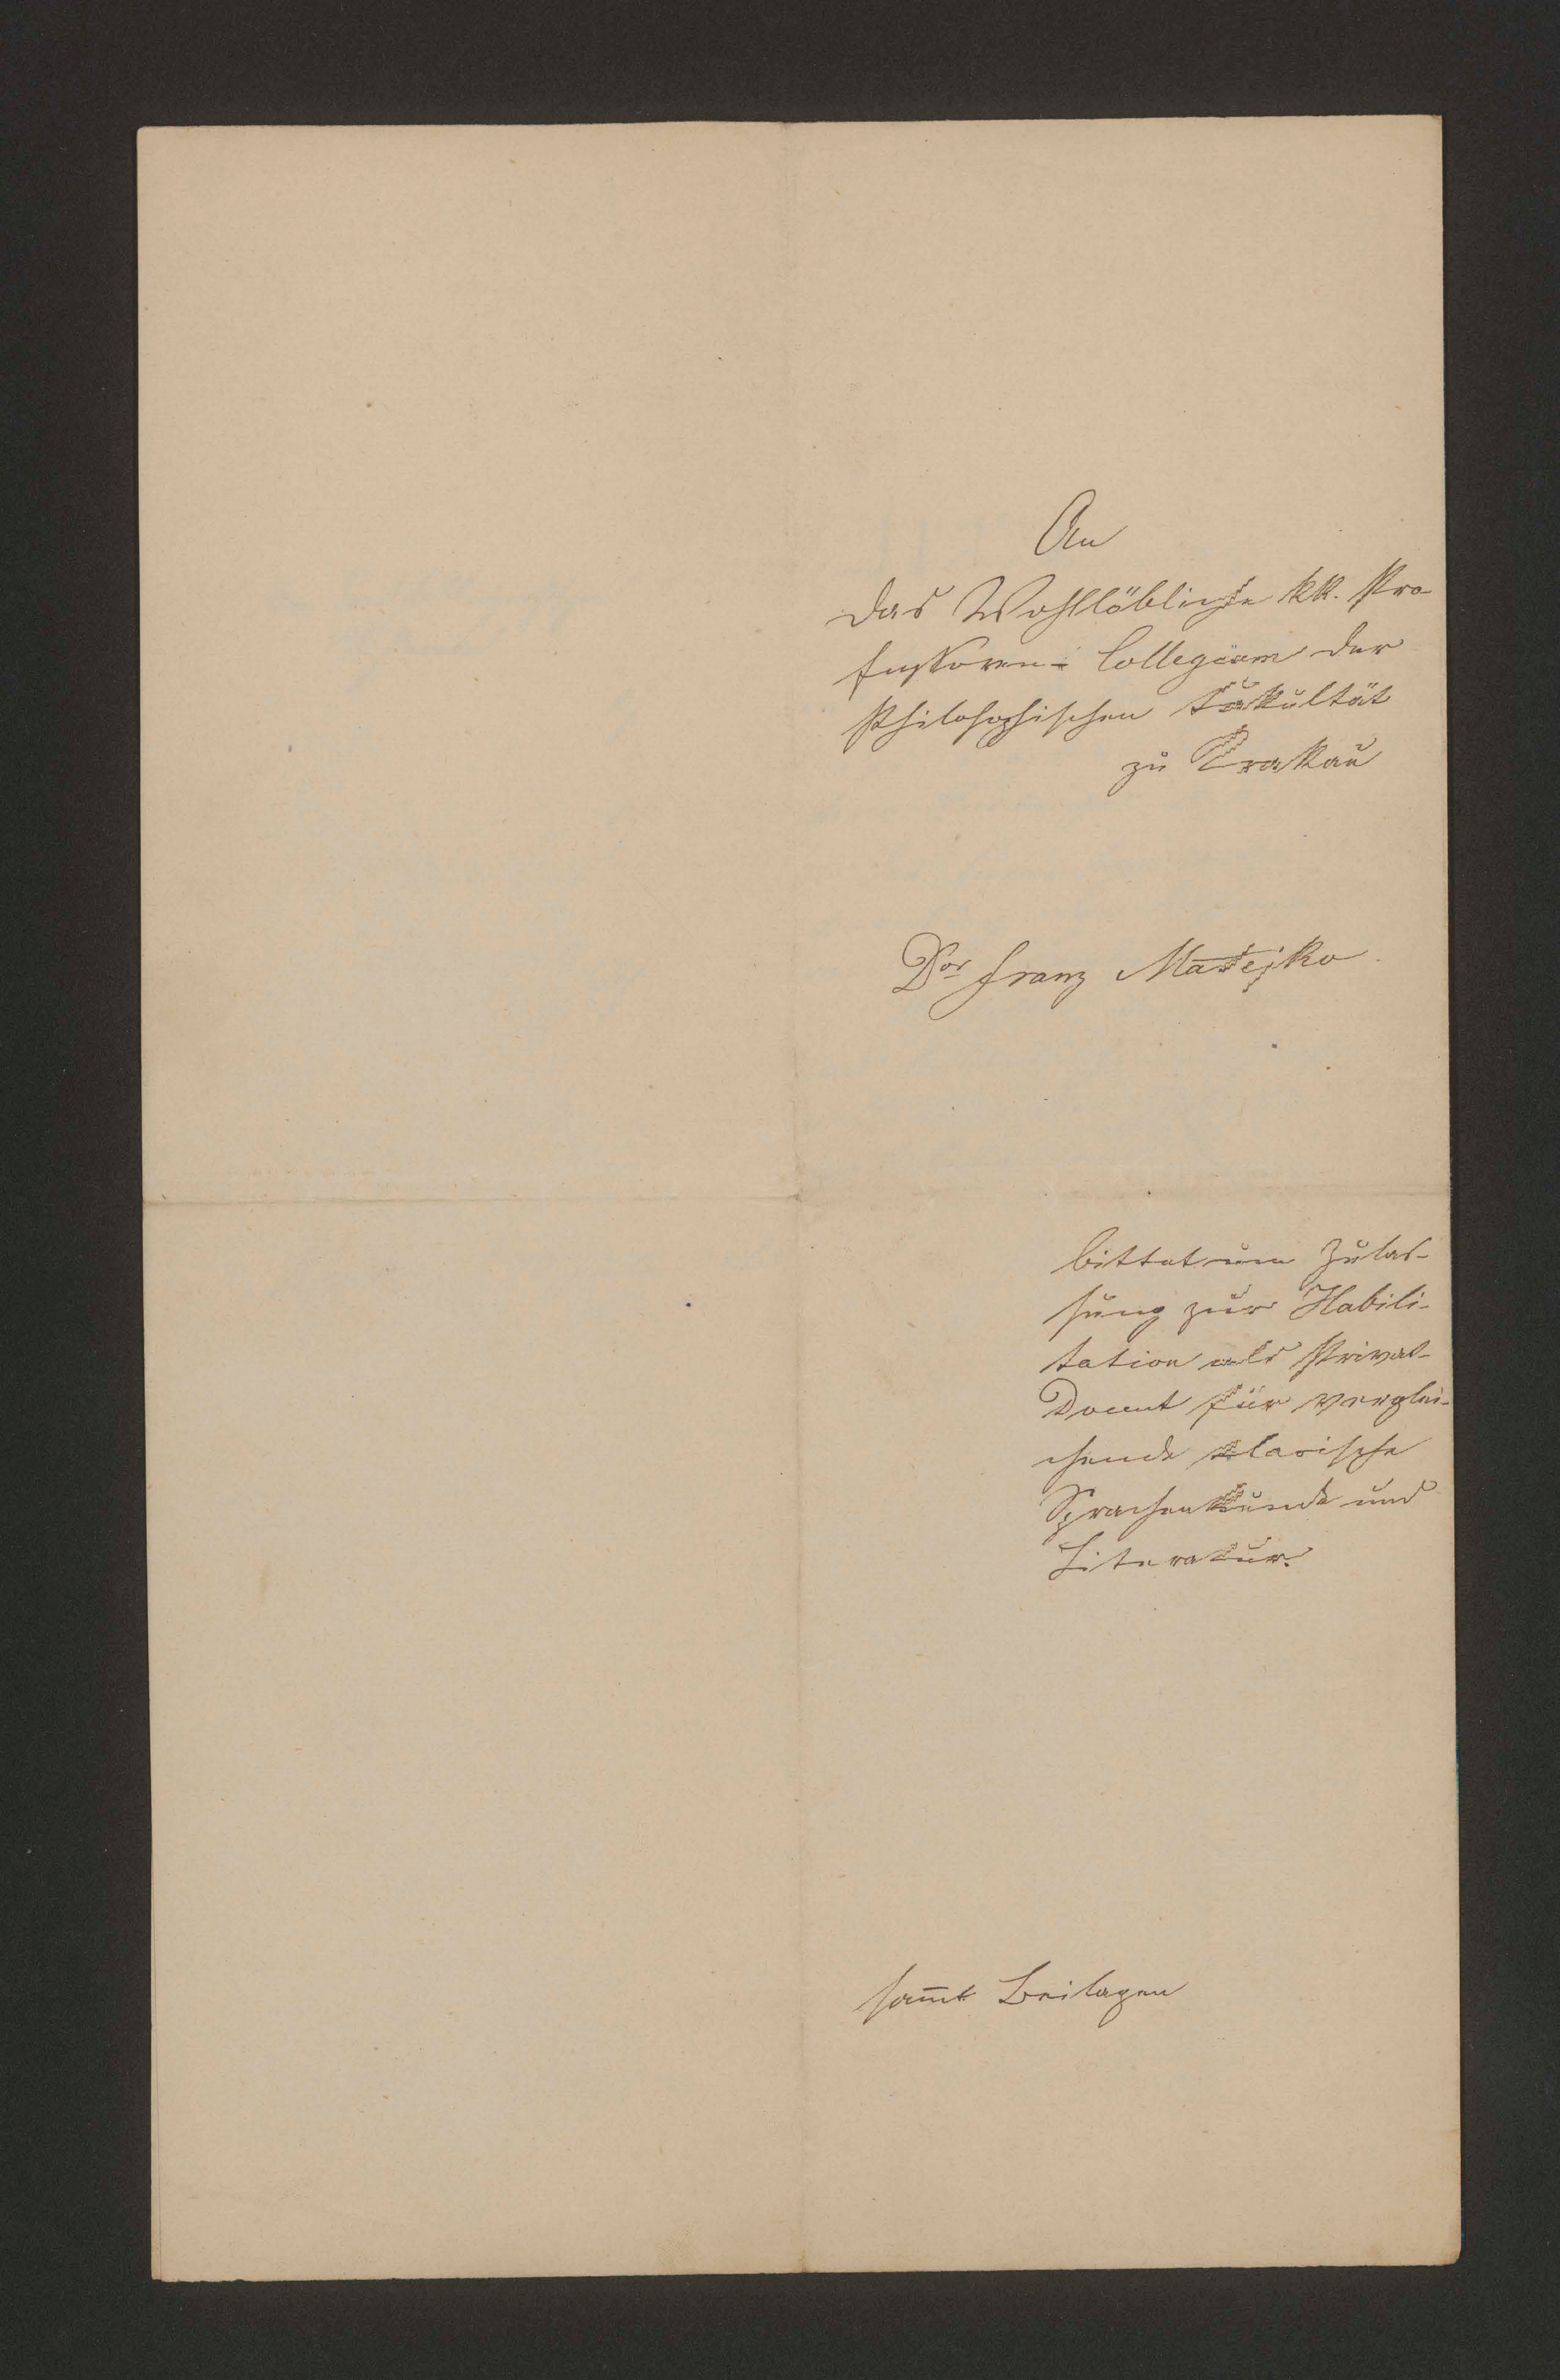 An
das Wohllöbliche kk. Pro-
fessoren-Collegium der
Philosophischen Fakultät
zu Krakau
Dor Franz Matejko
bittet um Zulas-
sung zur Habili-
tation als Privat-
Docent für verglei-
chende slavische
Sprachenkunde und
Literatur.
sam̄t Beilagen